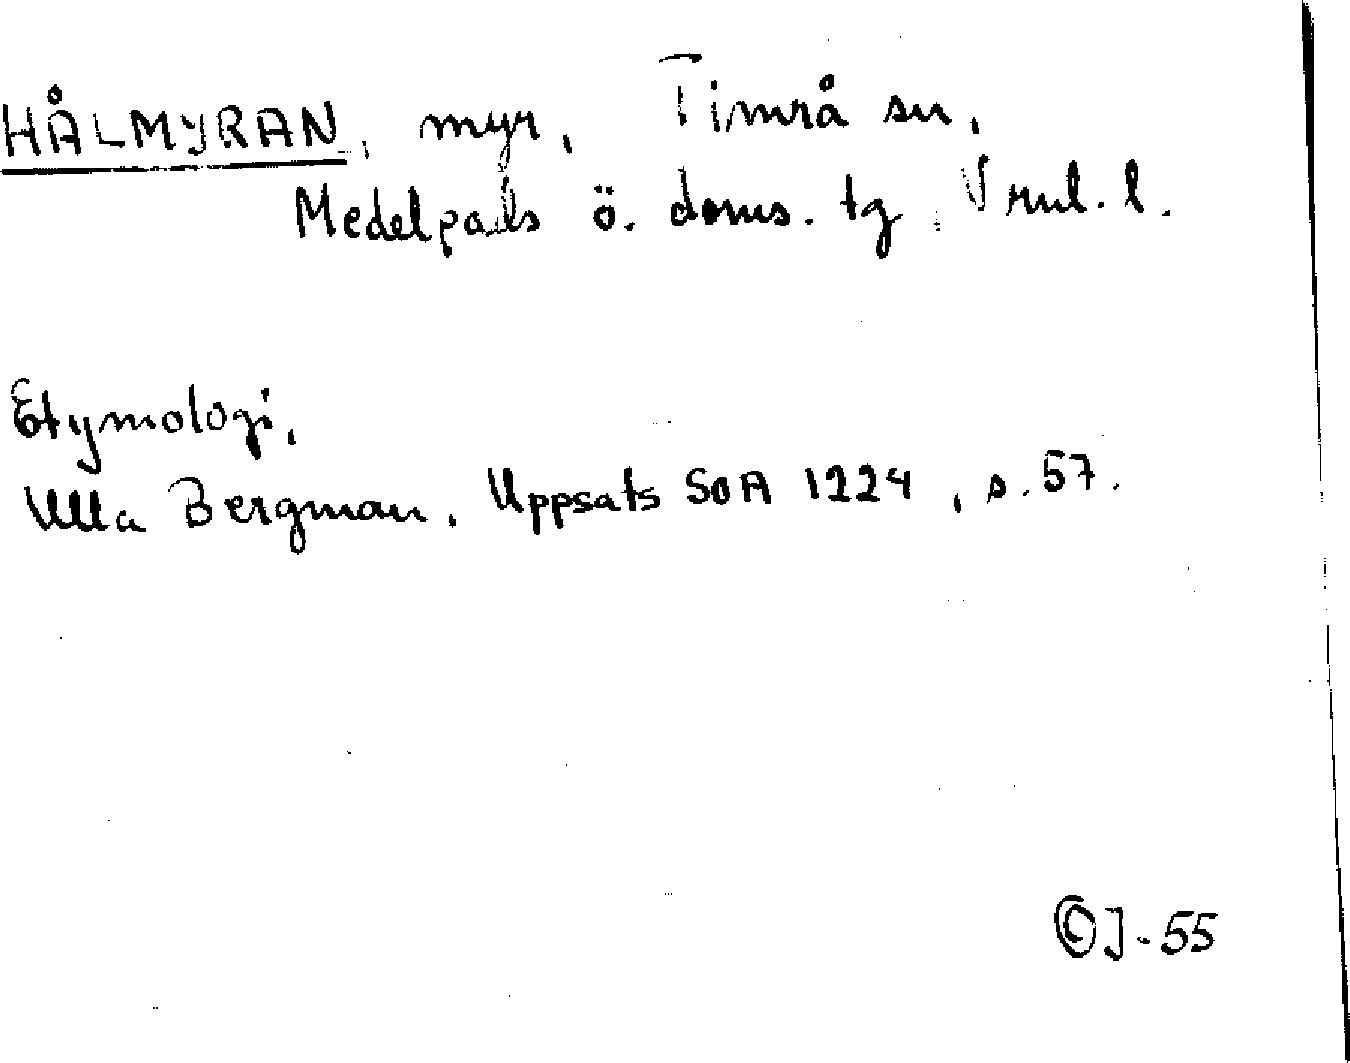 HÅLMYRAN, myr, Timrå sn,
Medelpads ö. doms. tg, Vrnl. l.
Etymologi,
Ulla Bergman, Uppsats SOA 1224, s. 57.
© J-55